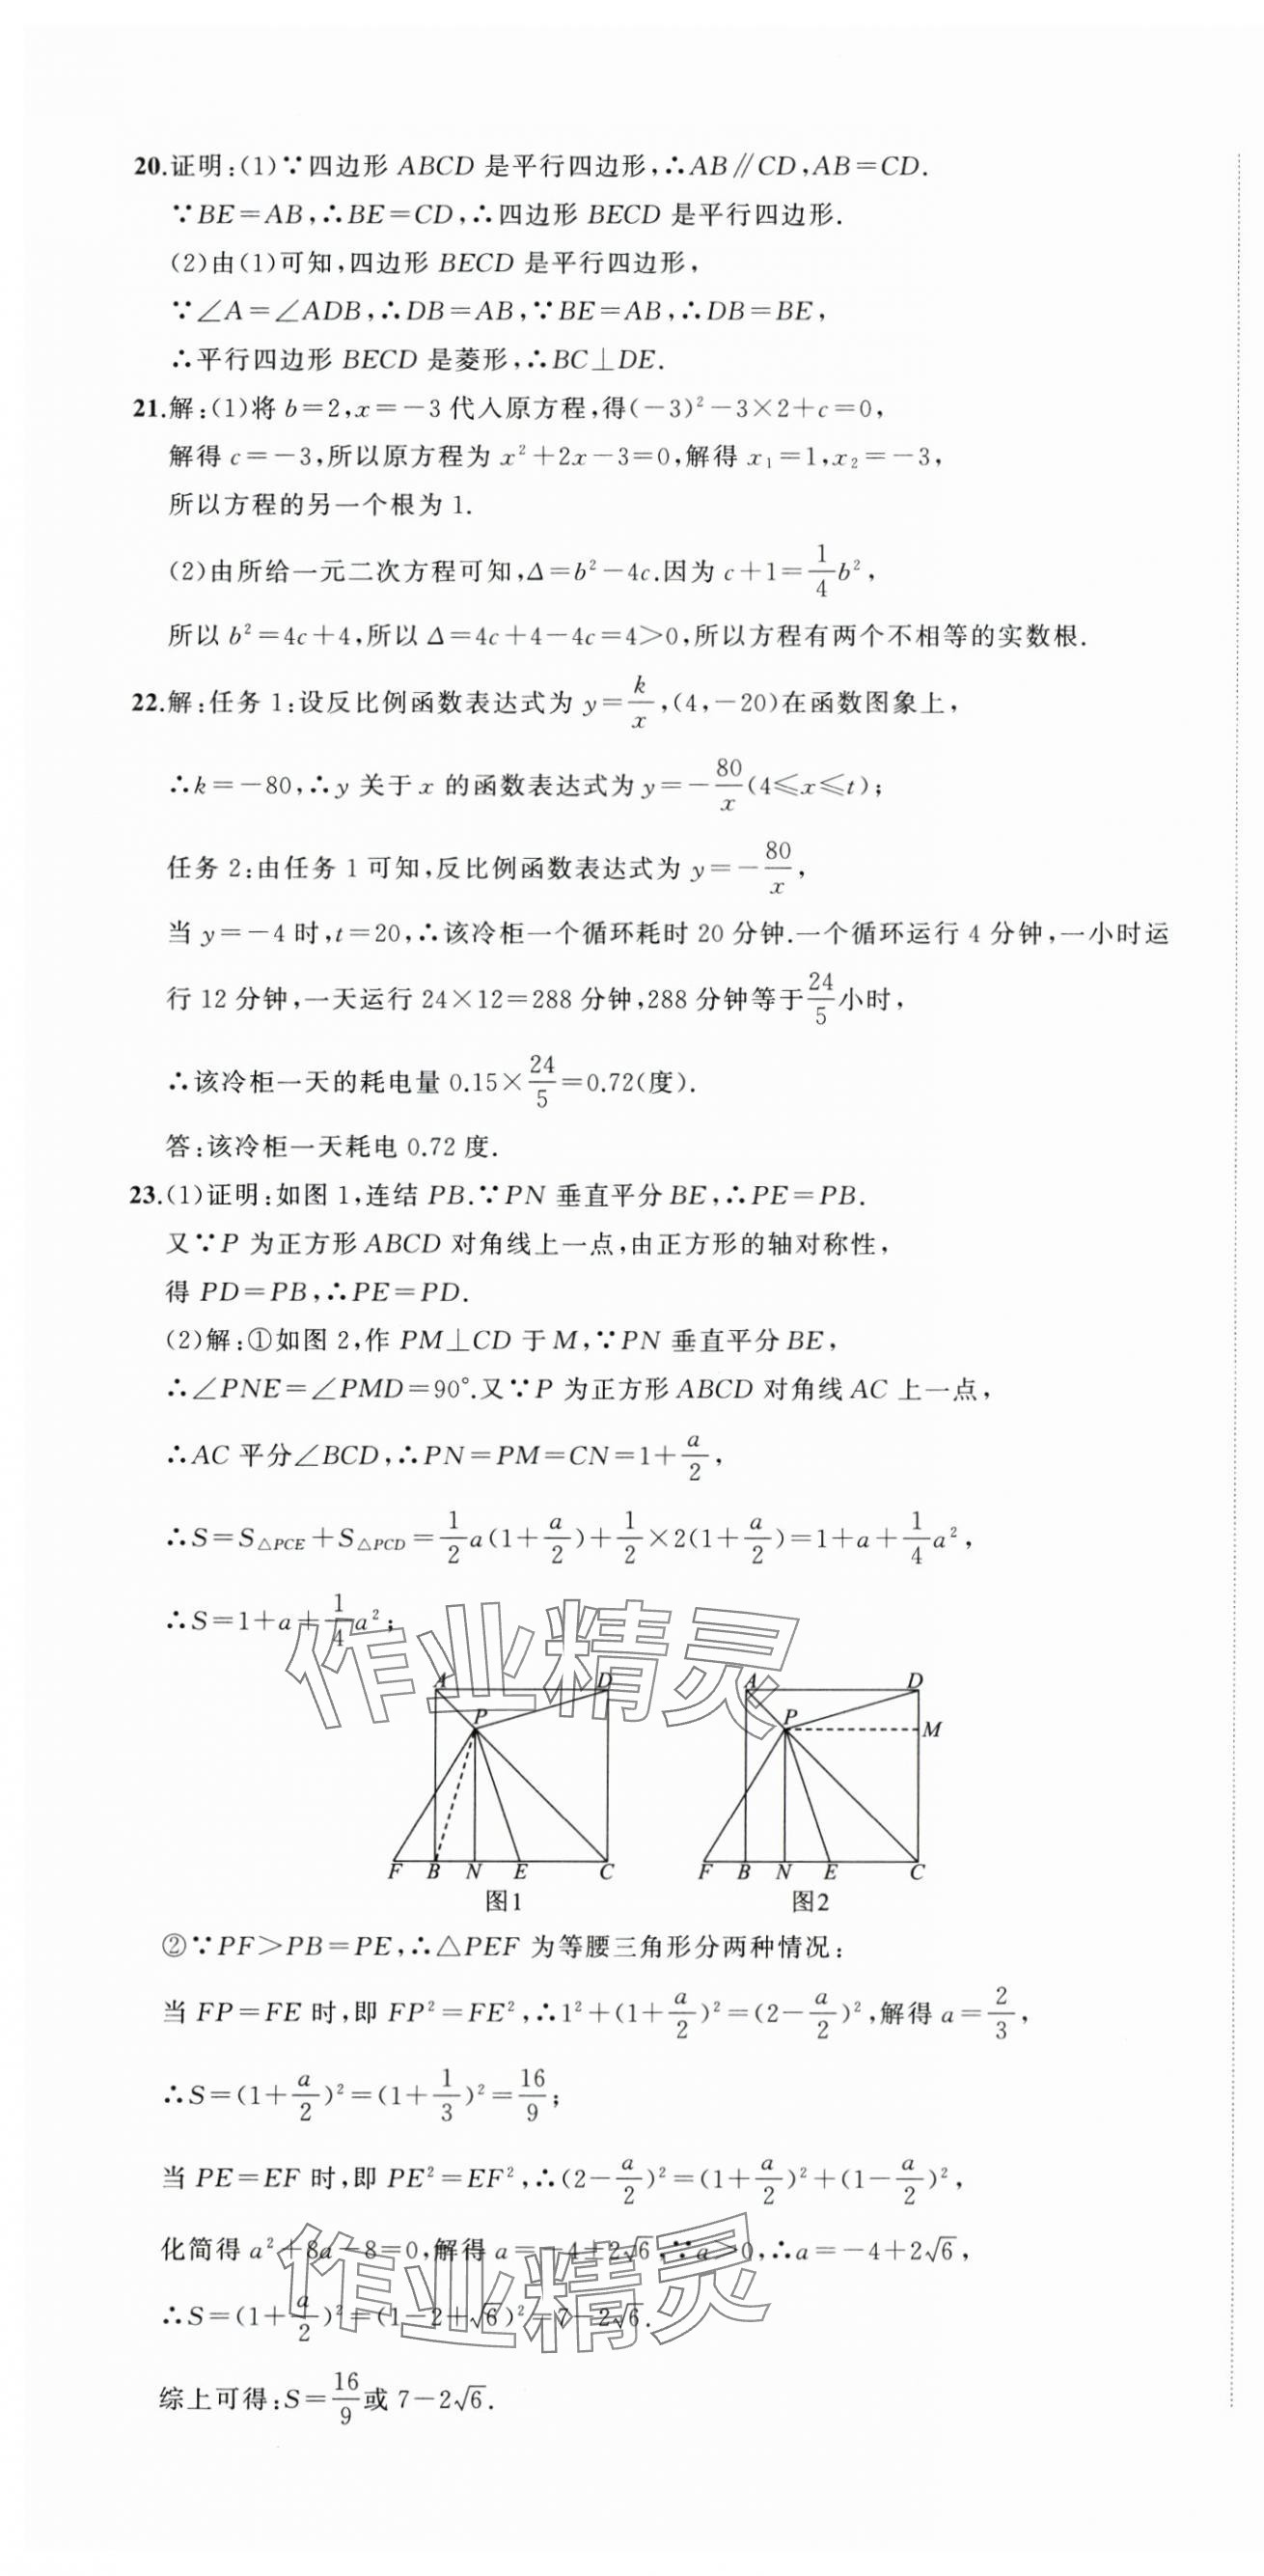 20.证明:(1)∵四边形 ABCD 是平行四边形,∴AB∥CD,AB=CD.
∵BE=AB,∴BE=CD,∴四边形 BECD 是平行四边形.
(2)由(1)可知,四边形 BECD 是平行四边形,
∵∠A=∠ADB,∴DB=AB,∵BE=AB,∴DB=BE,
∴平行四边形 BECD 是菱形,∴BC⊥DE.
21.解:(1)将 b=2,x=-3 代入原方程,得(-3)²-3×2+c=0,
解得 c=-3,所以原方程为 x²+2x-3=0,解得 x₁=1,x₂=-3,
所以方程的另一个根为 1.
(2)由所给一元二次方程可知,Δ=b²-4c.因为 c+1=1/4 b²,
所以 b²=4c+4,所以 Δ=4c+4-4c=4>0,所以方程有两个不相等的实数根.
22.解:任务 1:设反比例函数表达式为 y=k/x,(4,-20)在函数图象上,
∴k=-80,∴y 关于 x 的函数表达式为 y=-80/x(4≤x≤t);
任务 2:由任务 1 可知,反比例函数表达式为 y=-80/x,
当 y=-4 时,t=20,∴该冷柜一个循环耗时 20 分钟.一个循环运行 4 分钟,一小时运
行 12 分钟,一天运行 24×12=288 分钟,288 分钟等于24/5小时,
∴该冷柜一天的耗电量 0.15×24/5=0.72(度).
答:该冷柜一天耗电 0.72 度.
23.(1)证明:如图 1,连结 PB.∵PN 垂直平分 BE,∴PE=PB.
又∵P 为正方形 ABCD 对角线上一点,由正方形的轴对称性,
得 PD=PB,∴PE=PD.
(2)解:①如图 2,作 PM⊥CD 于 M,∵PN 垂直平分 BE,
∴∠PNE=∠PMD=90°.又∵P 为正方形 ABCD 对角线 AC 上一点,
∴AC 平分∠BCD,∴PN=PM=CN=1+a/2,
∴S=S△PCE+S△PCD=1/2 a(1+a/2)+1/2×2(1+a/2)=1+a+1/4 a²,
∴S=1+a+1/4 a²;
作业精灵
A D P F B N E C
图1
A D P M F B N E C
图2
②∵PF>PB=PE,∴△PEF 为等腰三角形分两种情况:
当 FP=FE 时,即 FP²=FE²,∴1²+(1+a/2)²=(2-a/2)²,解得 a=2/3,
∴S=(1+a/2)²=(1+1/3)²=16/9;
当 PE=EF 时,即 PE²=EF²,∴(2-a/2)²=(1+a/2)²+(1-a/2)²,
化简得 a²+8a-8=0,解得 a=-4±2√6,∵a>0,∴a=-4+2√6,
∴S=(1+a/2)²=(1-2+√6)²=7-2√6.
作业精灵
综上可得:S=16/9或 7-2√6.